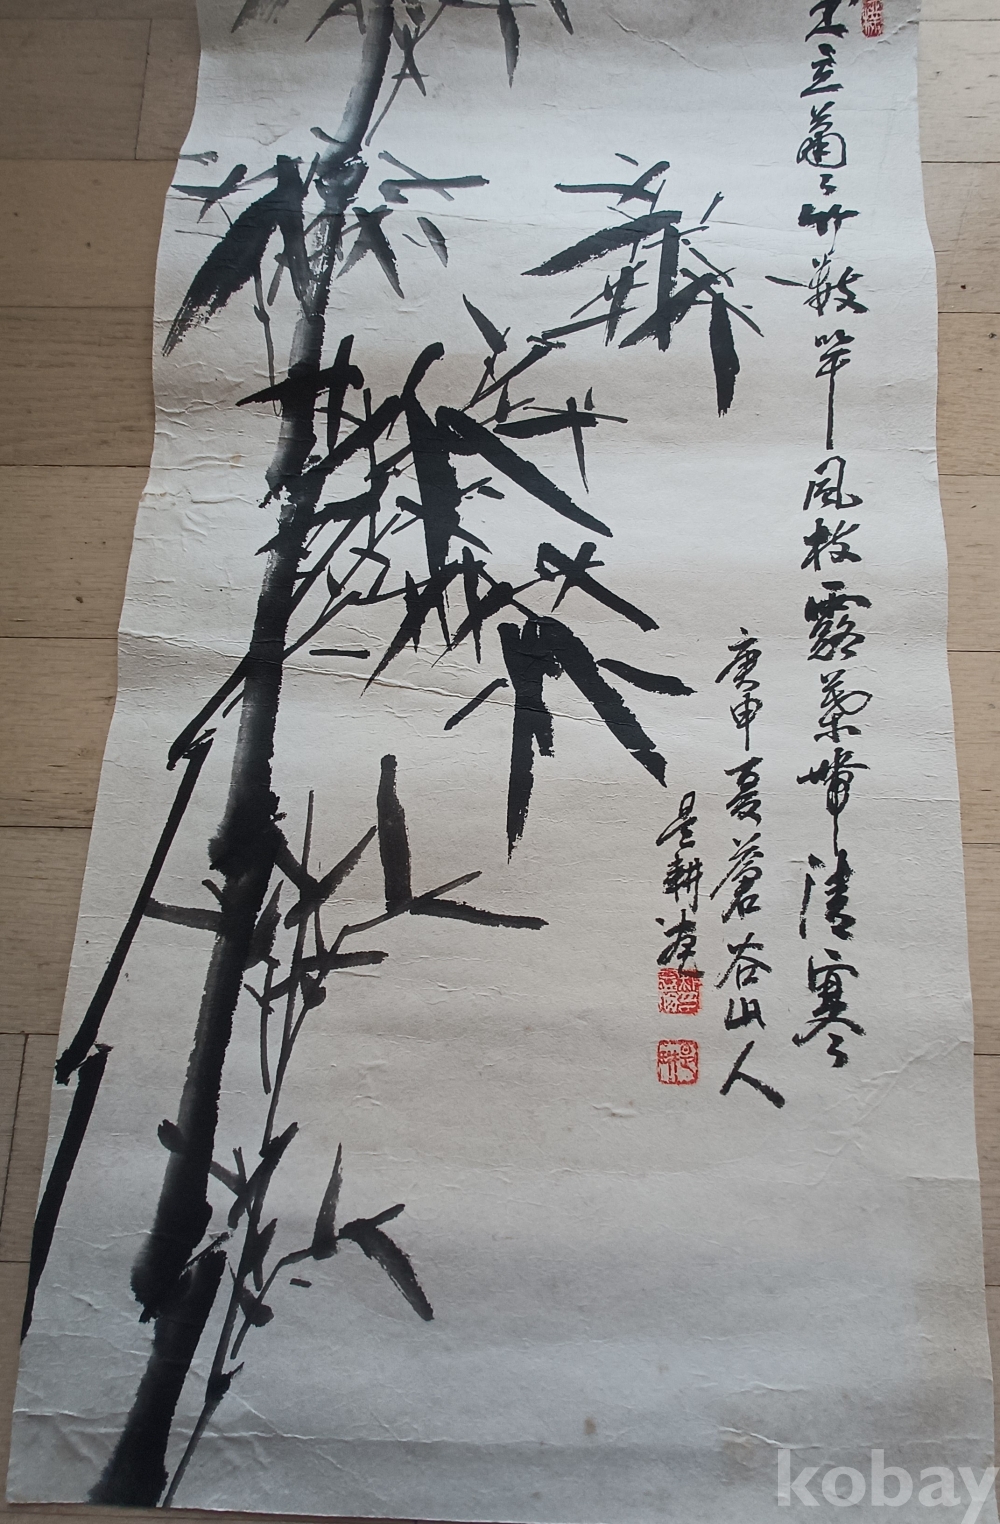 玉立蕭々竹數竿風枝露葉帶清寒
庚申夏蒼谷山人
是耕
kobay